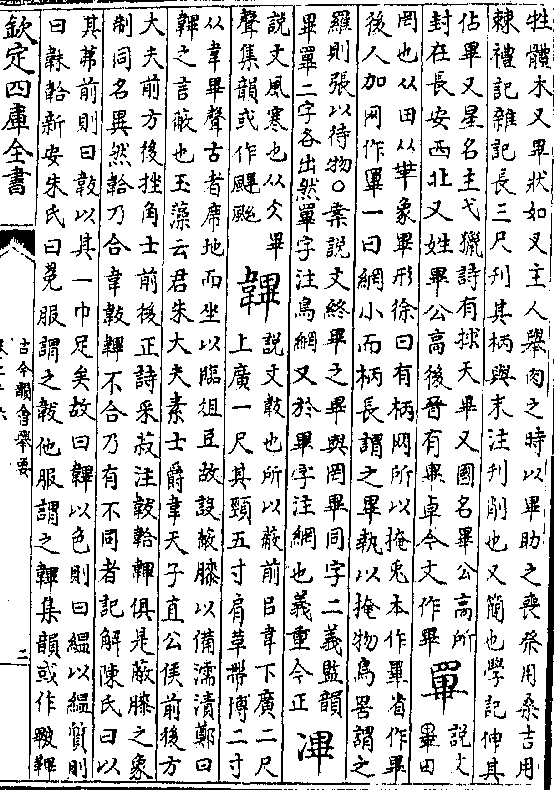 牲體木叉畢狀如叉主人舉肉之時以畢助之喪祭用桑吉用
棘禮記雜記長三尺刊其柄與末注刊削也又簡也學記伸其
佔畢又星名主弋獵詩有捄天畢又國名畢公高所
封在長安西北又姓畢公高後晉有畢卓今文作畢
罼
說文
畢田
罔也从田从華象畢形徐曰有柄网所以掩兎本作畢省作畢
後人加网作罼一曰網小而柄長謂之畢執以掩物鳥罟謂之
羅則張以待物○案說文終畢之畢與罔畢同字二義監韻
畢罼二字各出然罼字注鳥網又於畢字注網也義重今正
滭
說文風寒也从仌畢
聲集韻或作
韠
說文韍也所以蔽前以韋下廣二尺
上廣一尺其頸五寸肩革帶博二寸
从韋畢聲古者席地而坐以臨俎豆故設蔽膝以備濡漬鄭曰
韠之言蔽也玉藻云君朱大夫素士爵韋天子直公侯前後方
大夫前方後挫角士前後正詩采菽注韍韐韠俱是蔽膝之象
制同名異然韐乃合韋韍韠不合乃有不同者記解陳氏曰以
其芾前則曰韍以其一巾足矣故曰韠以色則曰縕以縕質則
曰韎韐新安朱氏曰冕服謂之韍他服謂之韠集韻或作韠
欽定四庫全書
古今韻會舉要
二